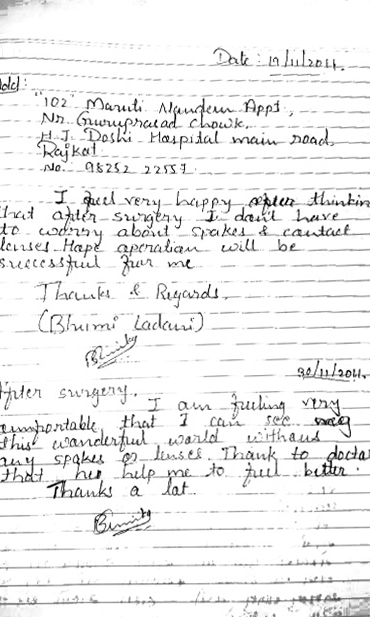 Date: 19/11/2011.
Add:
"102" Maruti Nandan Appt,
Nr. Guruprasad Chowk,
H.J. Doshi Hospital main road,
Rajkot.
No. 98252 22557
I feel very happy after thinkin
that after surgery I don't have
to worry about spakes & contact
lenses. Hope operation will be
successful for me
Thanks & Regards,
(Bhumi Ladani)
30/11/2011.
After surgery.
I am feeling very
comportable that I can see
this wonderful world without
any spakes or lenses. Thank to docto
that help me to feel better.
Thanks a lot.